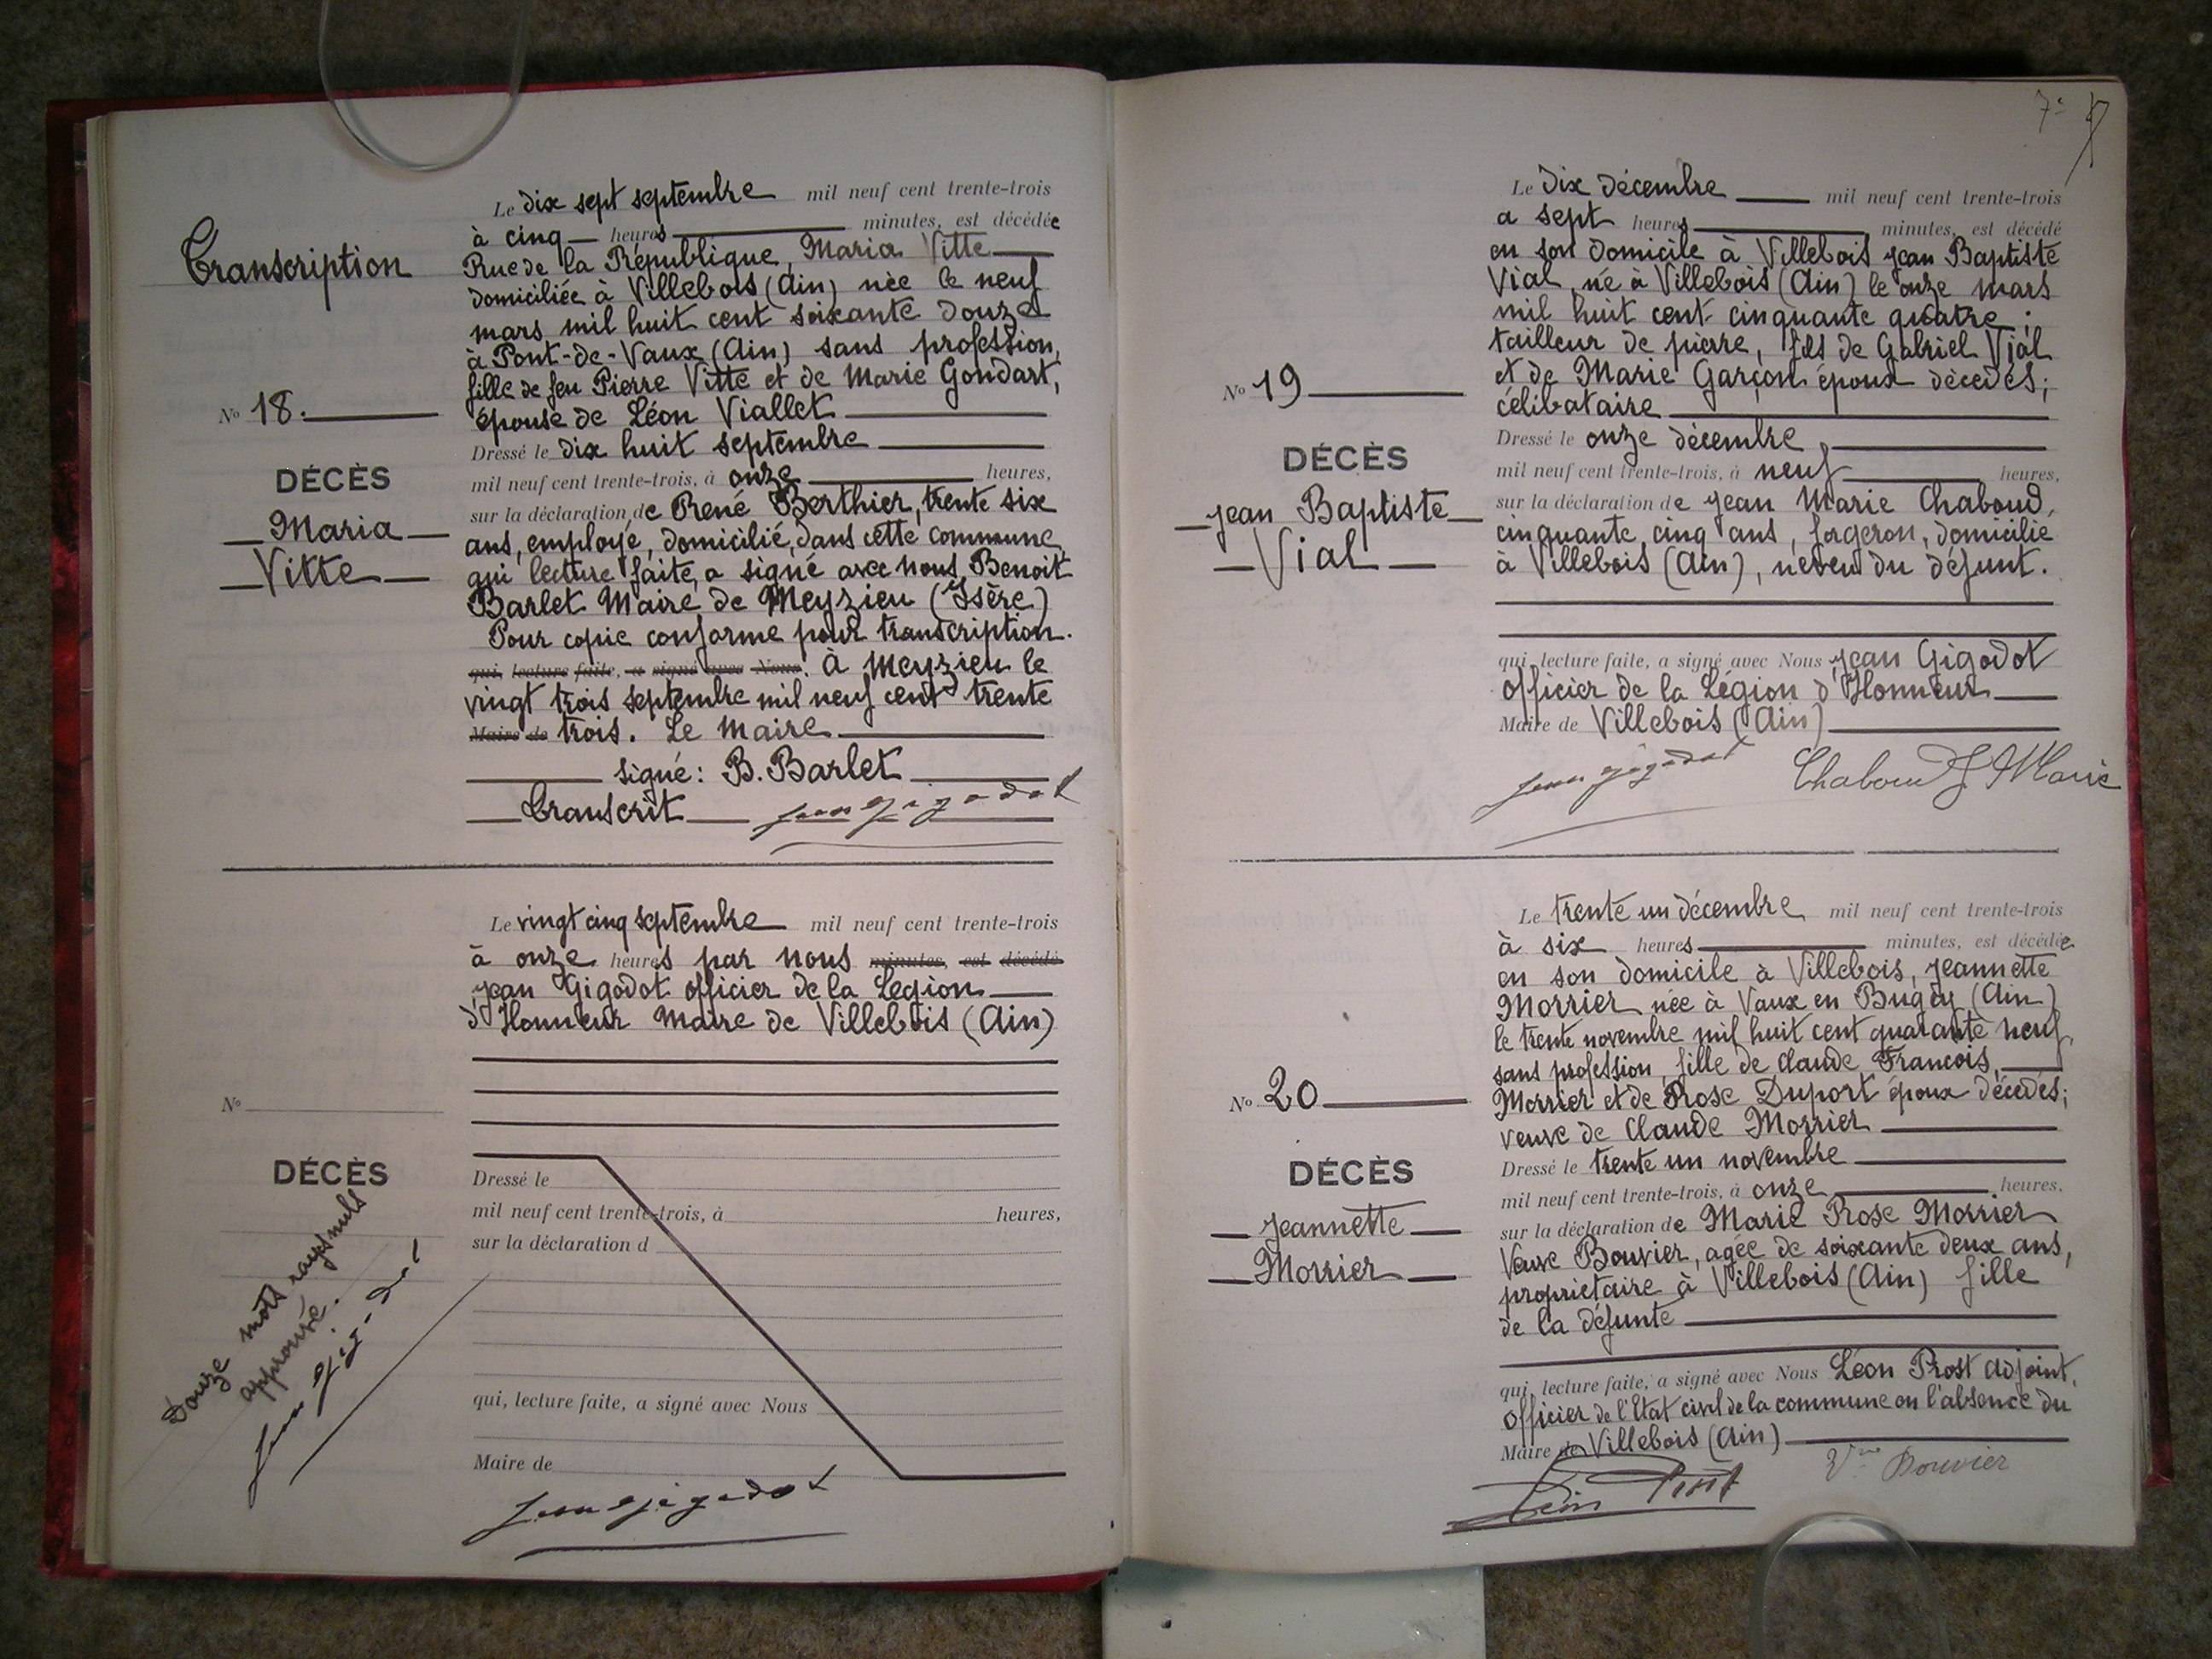 Transcription
Le dix sept septembre mil neuf cent trente-trois
à cinq heures minutes, est décédée
Rue de la République, Maria Vitte
domiciliée à Villebois (Ain) née le neuf
mars mil huit cent soixante douze
à Pont-de-Vaux (Ain) sans profession,
fille de feu Pierre Vitte et de Marie Gondart,
épouse de Léon Viallet
No 18.
DÉCÈS
Maria
Vitte
Dressé le dix huit septembre
mil neuf cent trente-trois, à onze heures,
sur la déclaration de René Berthier, trente six
ans, employé, domicilié, dans cette commune
qui lecture faite, a signé avec nous Benoit
Barlet Maire de Meyzieu (Isère)
Pour copie conforme pour transcription.
qui, lecture faite, a signé avec Nous. À Meyzieu le
vingt trois septembre mil neuf cent trente
Maire de trois. Le Maire
signé: B. Barlet
Transcrit Jean Gigodot
Le vingt cinq septembre mil neuf cent trente-trois
à onze heures par nous minutes, est décédé
Jean Gigodot officier de la Légion
d'Honneur Maire de Villebois (Ain)
No
DÉCÈS
Dressé le
mil neuf cent trente-trois, à heures,
sur la déclaration d
qui, lecture faite, a signé avec Nous
Maire de
Jean Gigodot
Douze mots rayés nuls
approuvé.
Jean Gigodot
7e
Le dix décembre mil neuf cent trente-trois
a sept heures minutes, est décédé
en son domicile à Villebois Jean Baptiste
Vial, né à Villebois (Ain) le onze mars
mil huit cent cinquante quatre;
tailleur de pierre, fils de Gabriel Vial
et de Marie Garçon époux décédés;
célibataire
No 19
DÉCÈS
Jean Baptiste
Vial
Dressé le onze décembre
mil neuf cent trente-trois, à neuf heures,
sur la déclaration de Jean Marie Chaboud,
cinquante cinq ans, forgeron, domicilié
à Villebois (Ain), neveu du défunt.
qui, lecture faite, a signé avec Nous Jean Gigodot
officier de la Légion d'Honneur
Maire de Villebois (Ain)
Jean Gigodot Chaboud J Marie
Le trente un décembre mil neuf cent trente-trois
à six heures minutes, est décédée
en son domicile à Villebois, Jeannette
Morrier née à Vaux en Bugey (Ain)
le trente novembre mil huit cent quarante neuf,
sans profession, fille de Claude François,
Morrier et de Rose Duport époux décédés;
veuve de Claude Morrier
No 20
DÉCÈS
Jeannette
Morrier
Dressé le trente un novembre
mil neuf cent trente-trois, à onze heures,
sur la déclaration de Marie Rose Morrier
Veuve Bouvier, agée de soixante deux ans,
propriétaire à Villebois (Ain) fille
de la défunte
qui, lecture faite, a signé avec Nous Léon Prost adjoint,
officier de l'Etat civil de la commune en l'absence du
Maire de Villebois (Ain)
Léon Prost Vve Bouvier